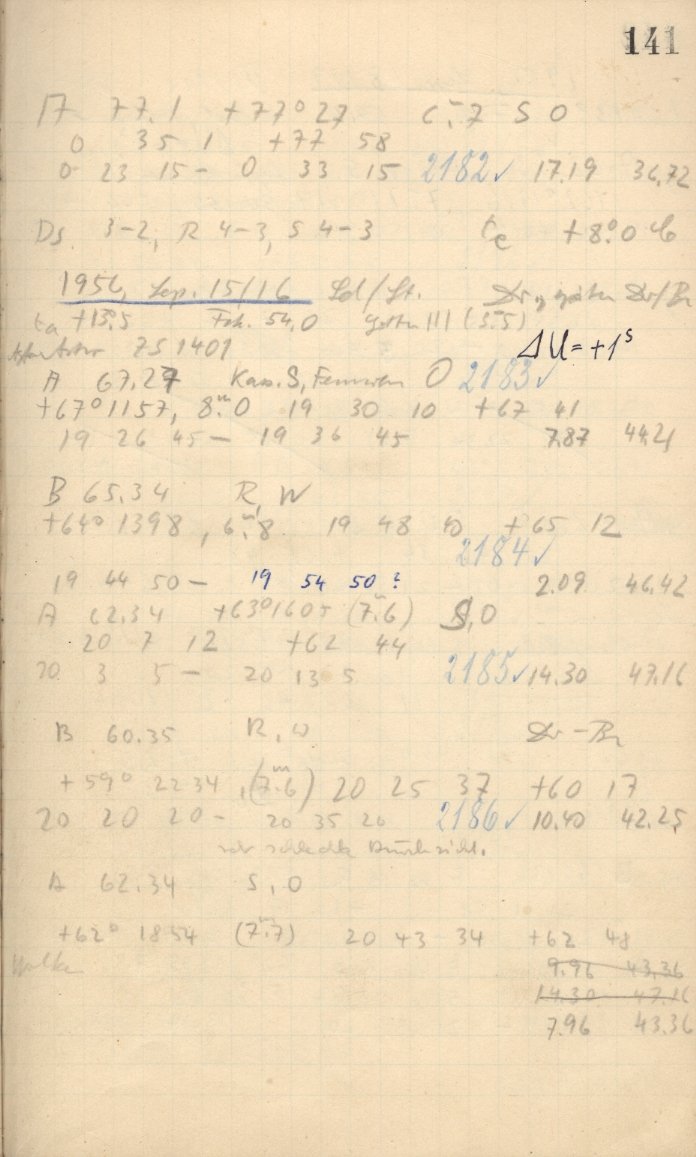 141
17 77.1 +77° 27 S O
0 35 1 +77 58
0 23 15 - 0 33 15 2182✓ 17.19 36,72
Ds 3-2, R 4-3, S 4-3 +8°.0
1956, Sep. 15/16
+13°.5 Fok. 54,0 (5.5)
ΔU = +1ˢ
ZS 1401
A 67.27 Kass. S, O 2183✓
+67° 1157, 8ᵐ.0 19 30 10 +67 41
19 26 45 - 19 36 45 7.87 44,21
B 65.34 R, W
+64° 1398, 6ᵐ.8 19 48 10 +65 12
2184✓
19 44 50 - 19 54 50? 2.09 46.42
A 62.34 +63° 1605 (7ᵐ.6) S, O
20 7 12 +62 44
20 3 5 - 20 13 5 2185✓ 14.30 47.16
B 60.35 R, W Dr - Br
+59° 2234, (7ᵐ.6) 20 25 37 +60 17
20 20 20 - 20 35 20 2186✓ 10.40 42.25
sehr schlechte Durchsicht.
A 62.34 S, O
+62° 1854 (7ᵐ.7) 20 43 34 +62 48
Wolken
9.96 43,36
14.30 47.16
7.96 43.36